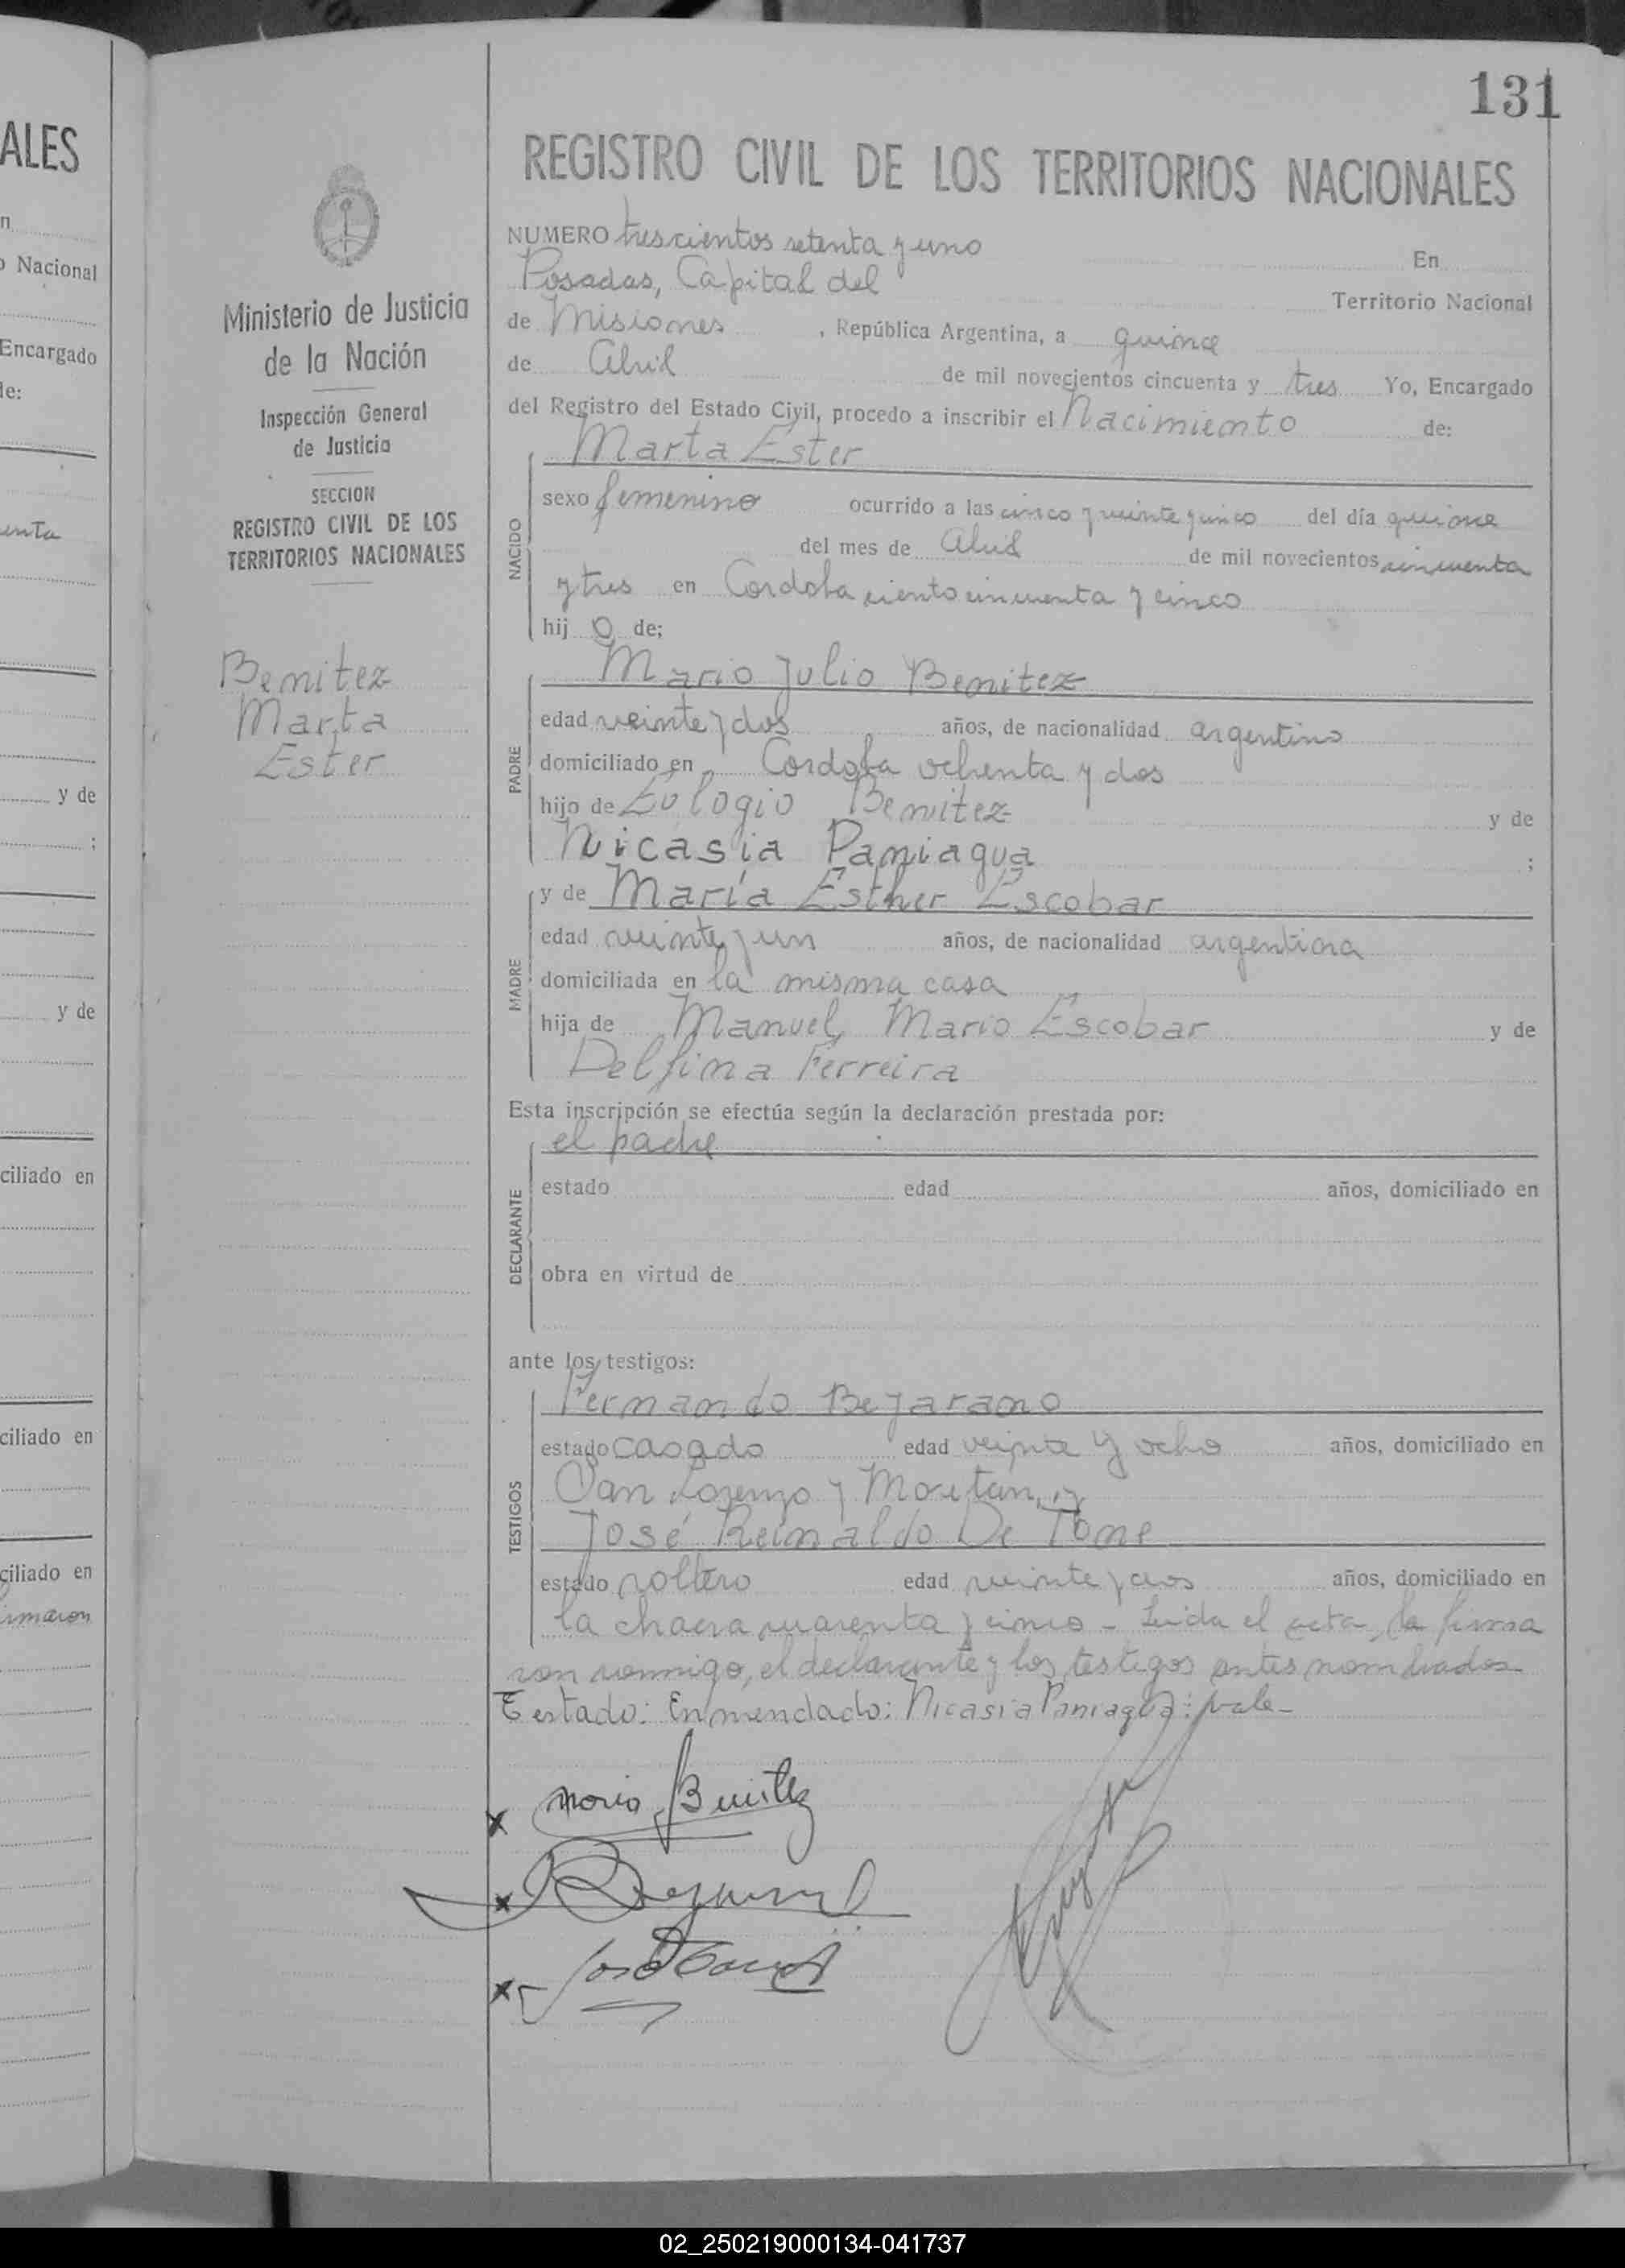 131
ALES
n
o Nacional
Encargado
de:
enta
y de
;
y de
ciliado en
ciliado en
ciliado en
irmaron
Ministerio de Justicia
de la Nación
Inspección General
de Justicia
SECCION
REGISTRO CIVIL DE LOS
TERRITORIOS NACIONALES
Benitez
Marta
Ester
REGISTRO CIVIL DE LOS TERRITORIOS NACIONALES
NUMERO trescientos setenta y uno En
Posadas, Capital del Territorio Nacional
de Misiones , República Argentina, a quince
de Abril de mil novecientos cincuenta y tres Yo, Encargado
del Registro del Estado Civil, procedo a inscribir el Nacimiento de:
Marta Ester
NACIDO
sexo femenino ocurrido a las cinco y veinte y cinco del día quince
del mes de Abril de mil novecientos cincuenta
y tres en Cordoba ciento cincuenta y cinco
hij a de;
Mario Julio Benitez
PADRE
edad veinte y dos años, de nacionalidad argentino
domiciliado en Cordoba ochenta y dos
hijo de Eulogio Benitez y de
Nicasia Paniagua ;
y de María Esther Escobar
MADRE
edad veinte y un años, de nacionalidad argentina
domiciliada en la misma casa
hija de Manuel Mario Escobar y de
Delfina Ferreira
Esta inscripción se efectúa según la declaración prestada por:
el padre
DECLARANTE
estado edad años, domiciliado en
obra en virtud de
ante los testigos:
Fernando Bejarano
TESTIGOS
estado casado edad veinte y ocho años, domiciliado en
San Lorenzo y Moritan, y
José Reinaldo De Tone
estado soltero edad veinte y dos años, domiciliado en
la chacra cuarenta y cinco - Leida el acta, la firma
ron conmigo, el declarante y los testigos antes nombrados
Testado: Enmendado: Nicasia Paniagua: vale-
Mario Benitez
02_250219000134-041737